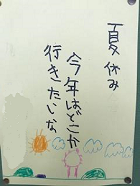 夏休み
今年はどこか
行きたいな